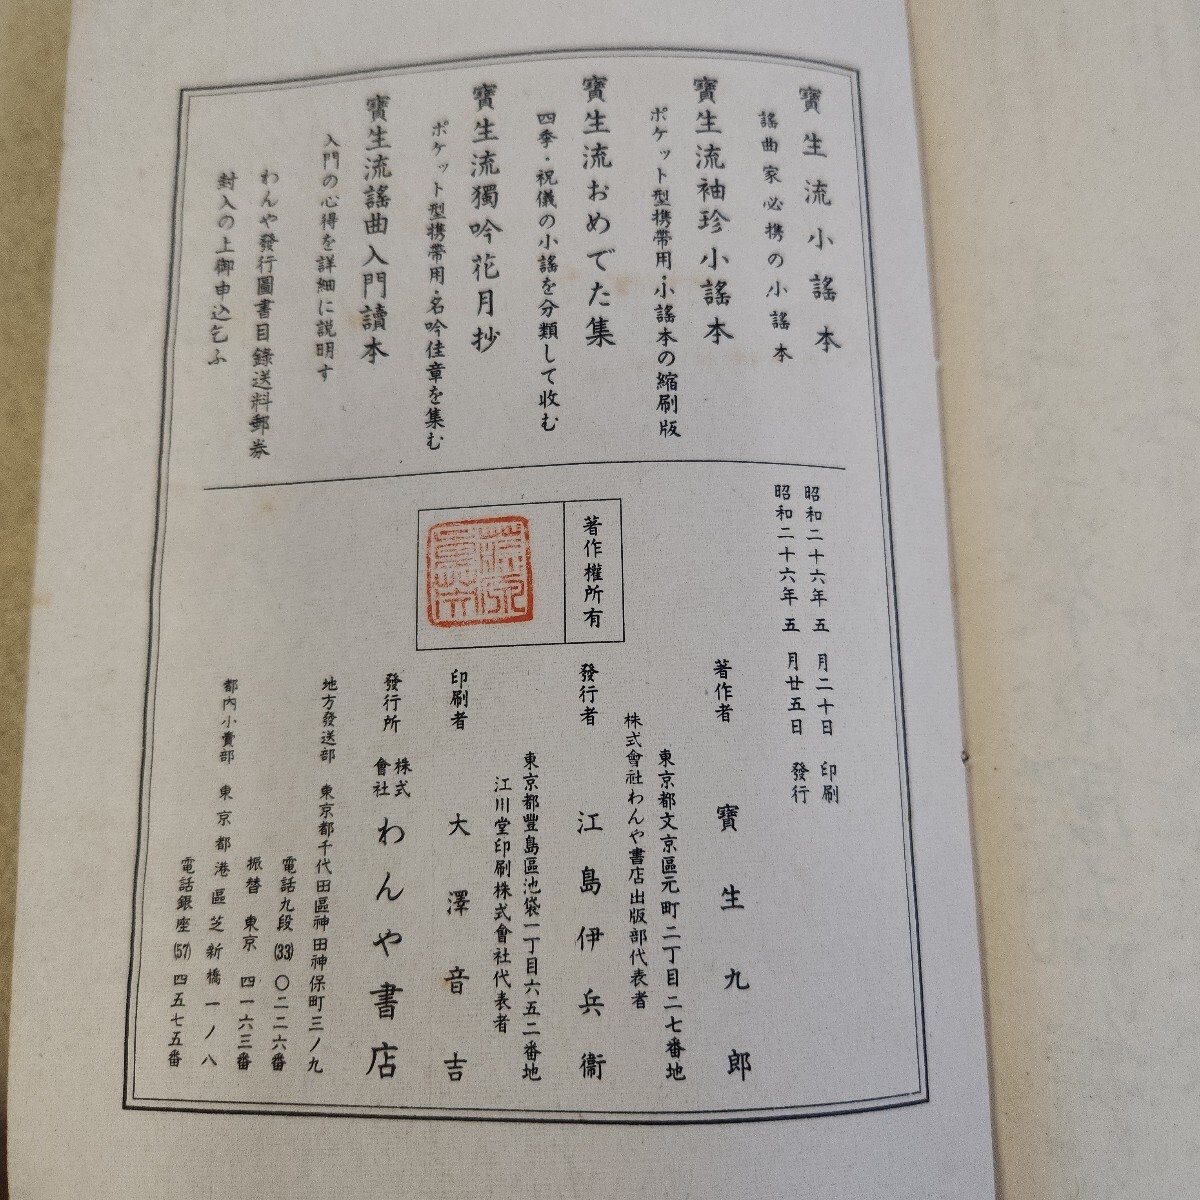 寶生流小謠本
謠曲家必携の小謠本
寶生流袖珍小謠本
ポケット型携帶用・小謠本の縮刷版
寶生流おめでた集
四季・祝儀の小謠を分類して收む
寶生流獨吟花月抄
ポケット型携帶用・名吟佳章を集む
寶生流謠曲入門讀本
入門の心得を詳細に説明す
わんや發行圖書目錄送料郵券
封入の上御申込乞ふ
昭和二十六年五月二十日 印刷
昭和二十六年五月廿五日 發行
著作權所有
著作者 寶生九郎
東京都文京區元町二丁目二七番地
株式會社わんや書店出版部代表者
發行者 江島伊兵衞
東京都豐島區池袋一丁目六五二番地
江川堂印刷株式會社代表者
印刷者 大澤音吉
發行所 株式會社 わんや書店
地方發送部 東京都千代田區神田神保町三ノ九
電話九段(33)〇二二六番
振替 東京 四一六三番
都內小賣部 東京都港區芝新橋一ノ八
電話銀座(57)四五七五番